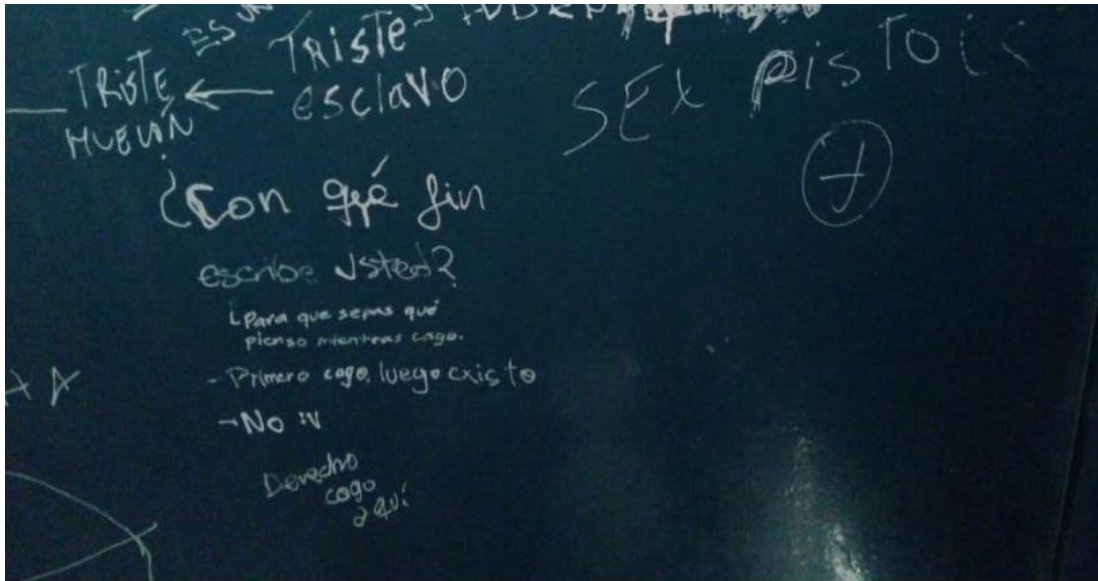 ES UN
TRISTE
TRISTE
esclavo
HUEVÓN
SEX PISTOLS
¿Con qué fin
escribe Usted?
Para que sepas qué
pienso mientras cago.
- Primero cago, luego existo
- No :v
Derecho
cago
aquí